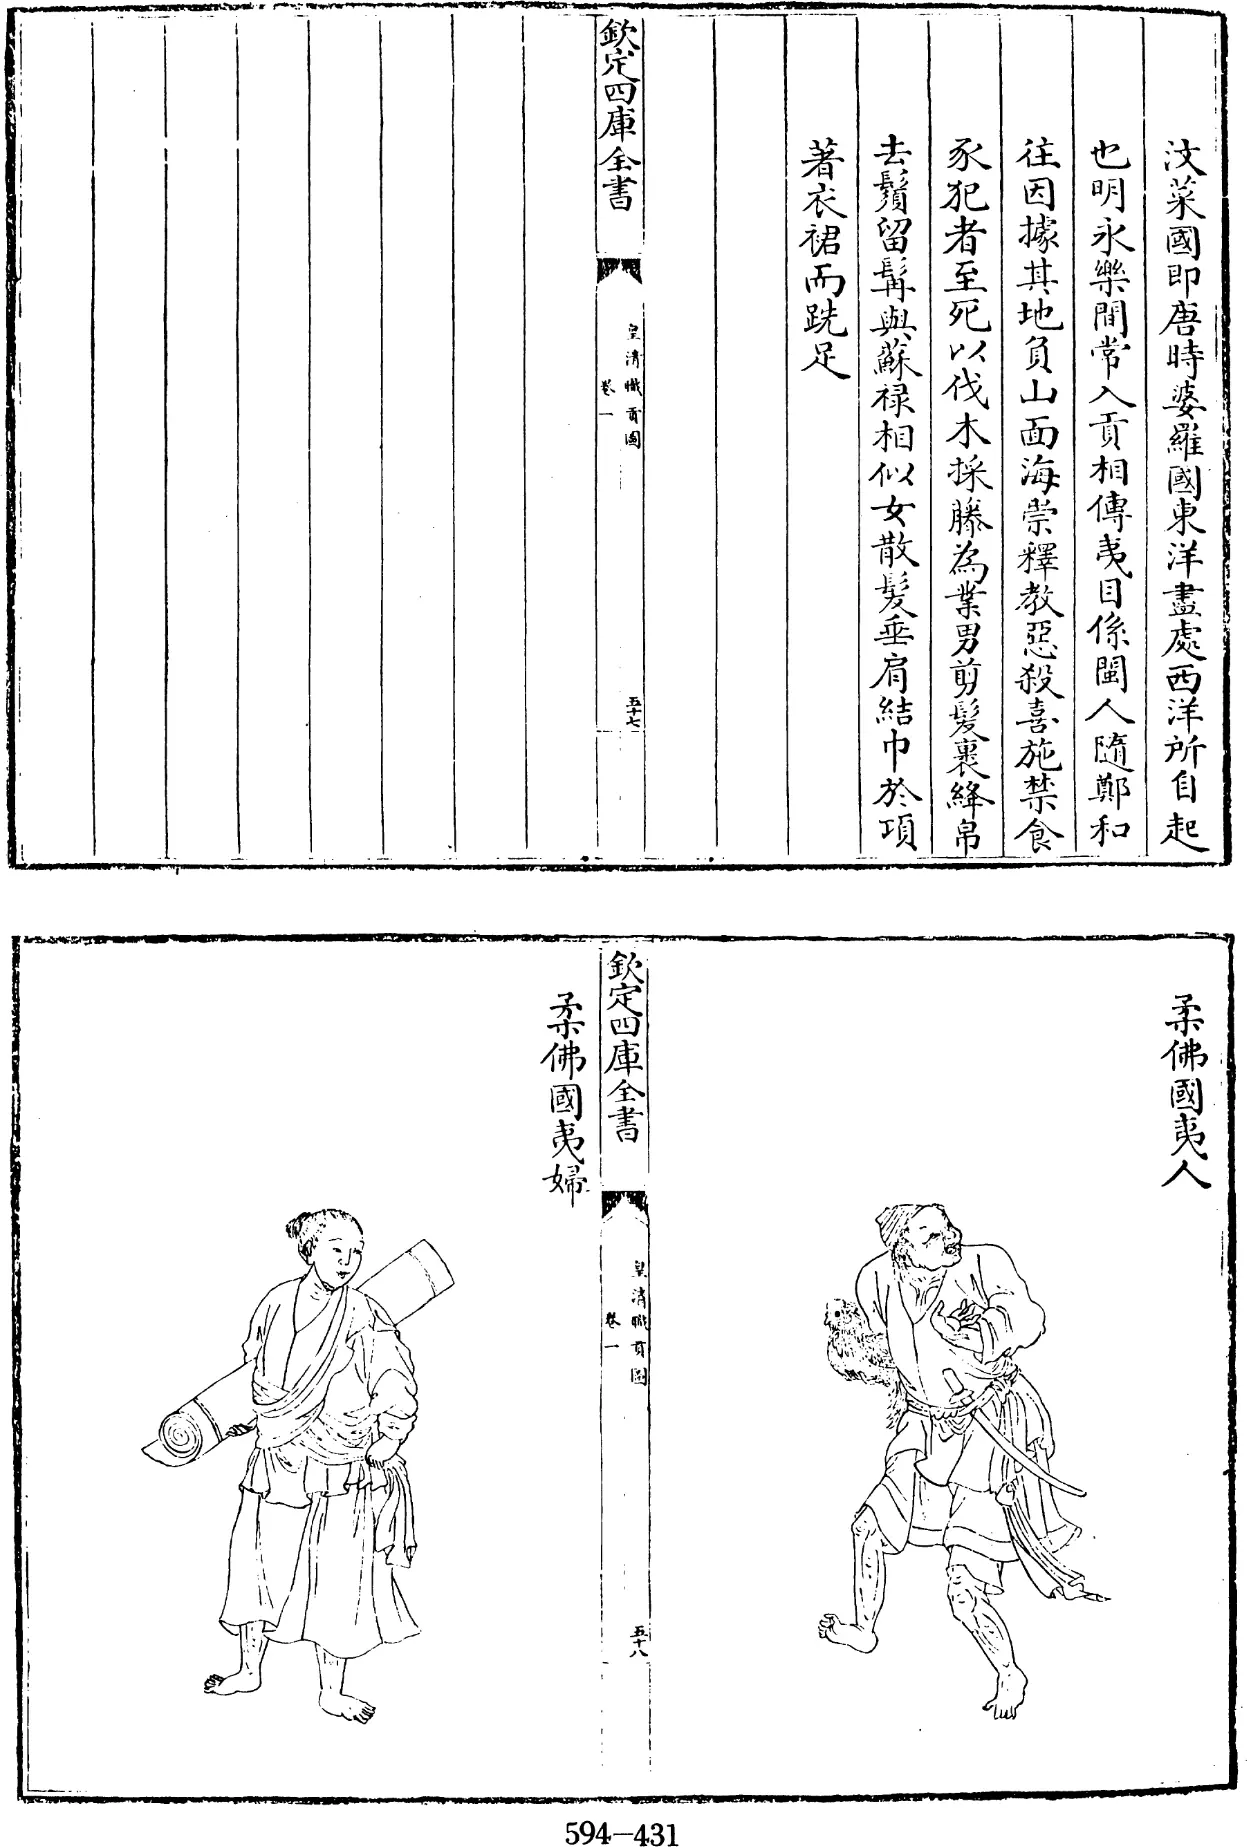 汶菜國即唐時婆羅國東洋盡處西洋所自起
也明永樂間常入貢相傳夷目係閩人隨鄭和
往因據其地負山面海崇釋教惡殺喜施禁食
豕犯者至死以伐木採藤為業男剪髮裹絳帛
去鬚留髯與蘇禄相似女散髮垂肩結巾於項
著衣裙而跣足
欽定四庫全書
皇清職貢圖
卷一
五十七
柔佛國夷人
欽定四庫全書
皇清職貢圖
卷一
五十八
柔佛國夷婦
594-431